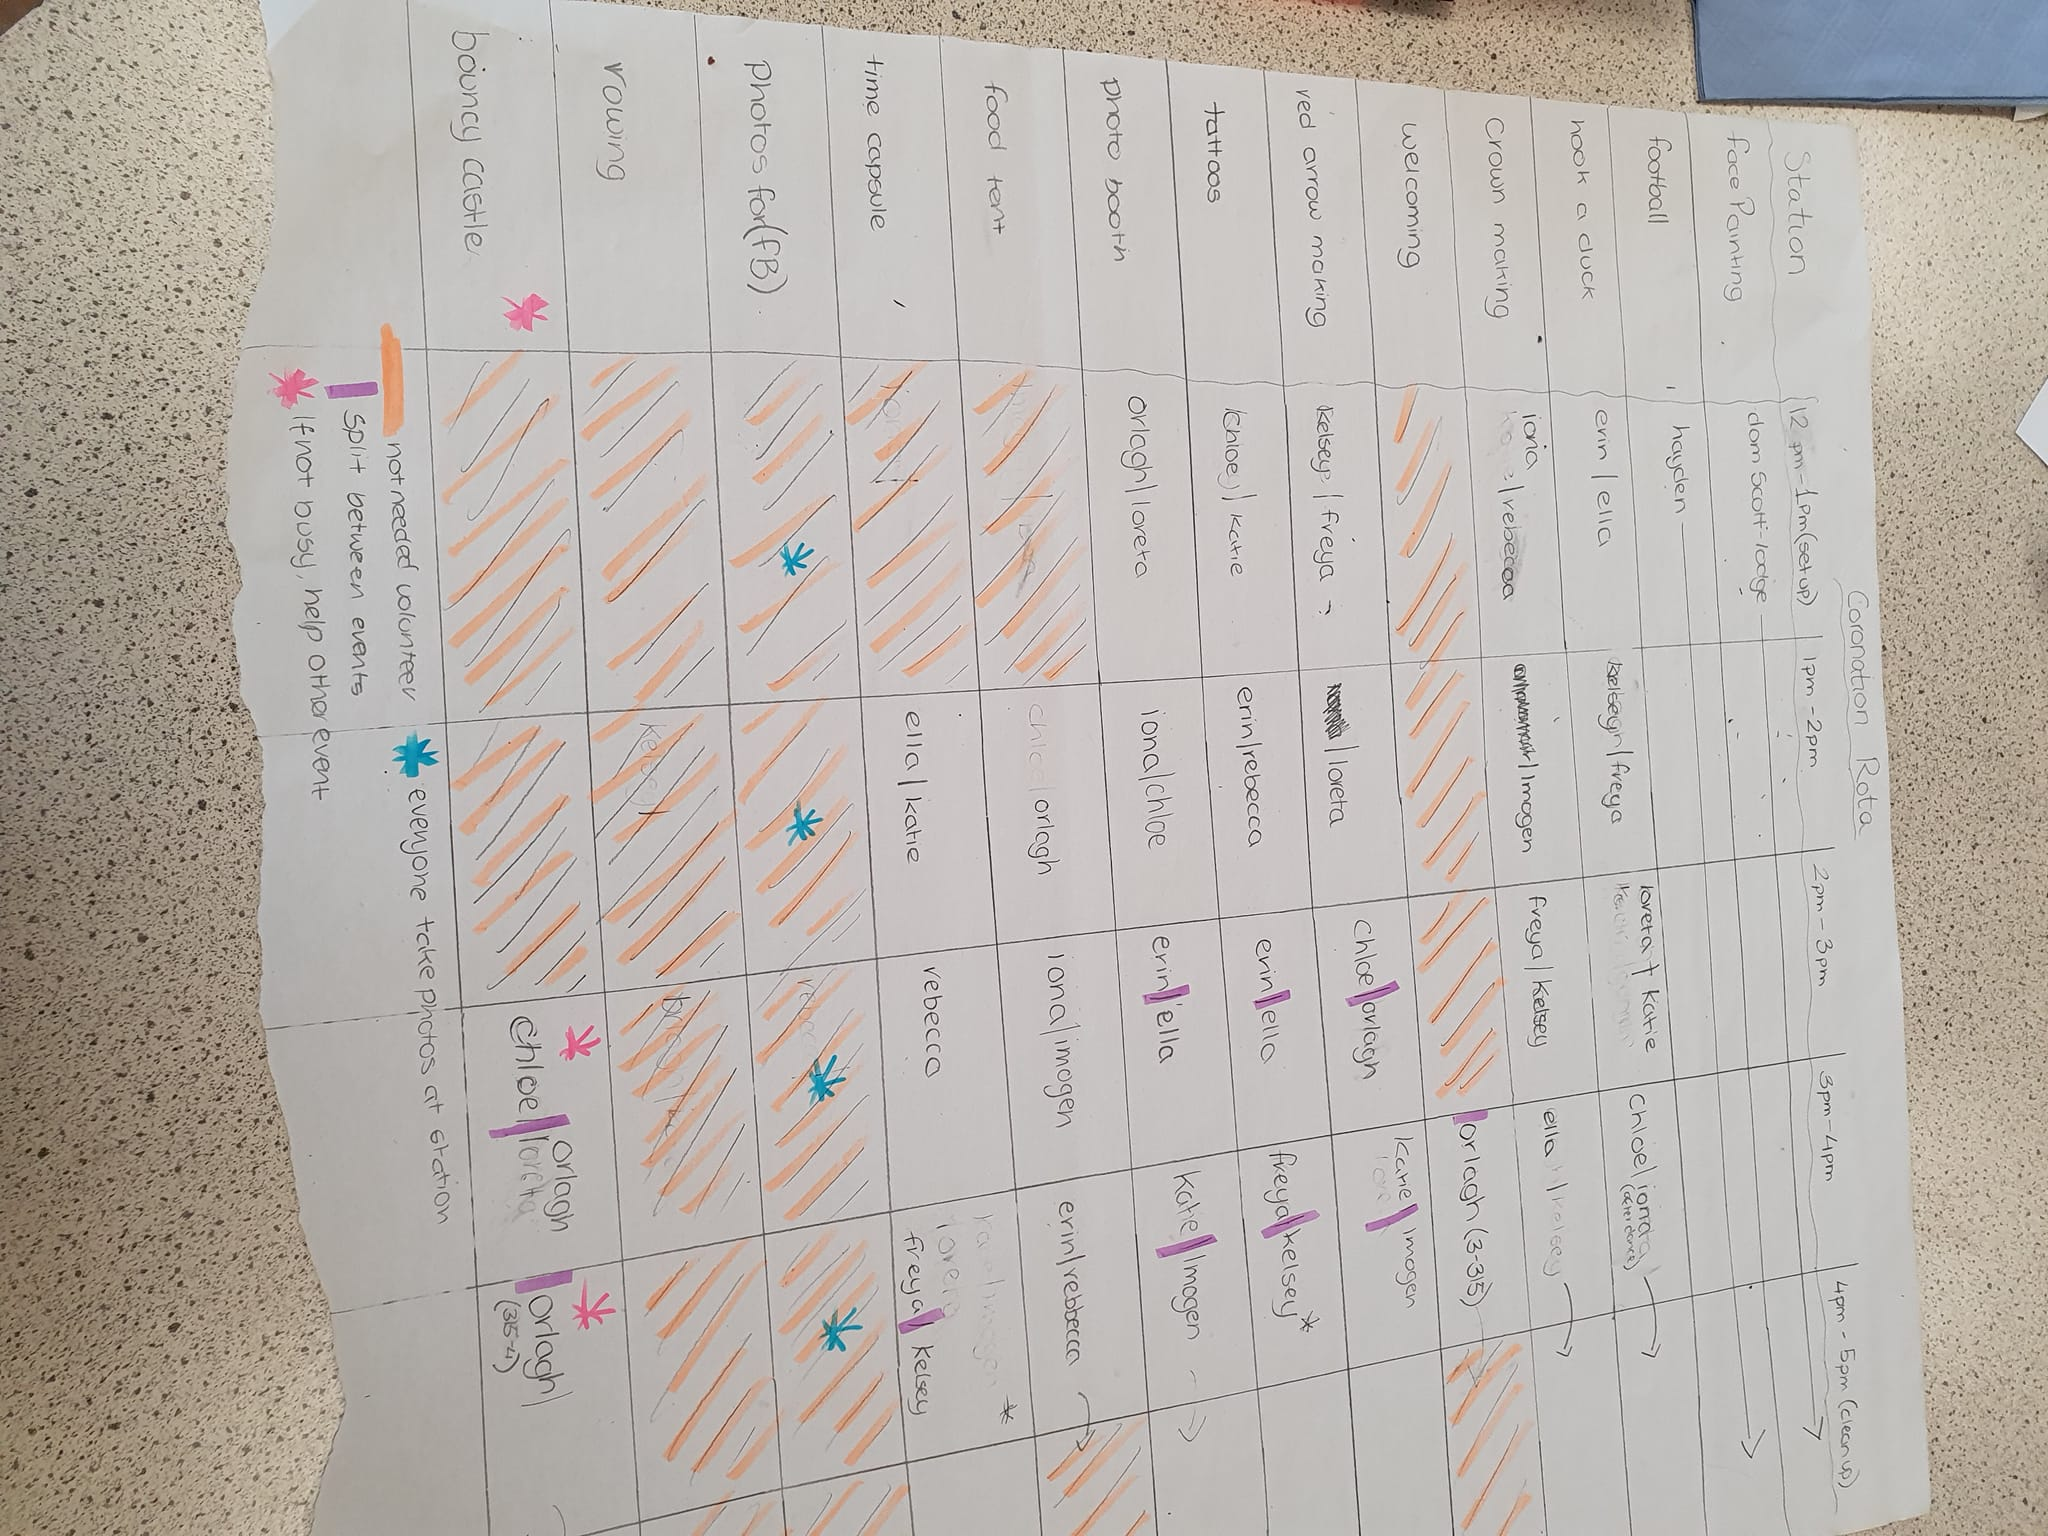 Coronation Rota
Station 12pm-1pm(setup) 1pm-2pm 2pm-3pm 3pm-4pm 4pm-5pm (clean up)
face Painting dom Scott-lodge
football hayden
hook a duck erin/ella kelseigh/freya loreta + katie Chloe/iona
(after dance)
Crown making iona/rebecca /imogen freya/kelsey ella/kelsey
welcoming orlagh (3-315)
red arrow making kelsey/freya /loreta Chloe/orlagh katie/imogen
tattoos Chloey/katie erin/rebecca erin/ella freya/kelsey *
photo booth orlagh/loreta iona/chloe erin/ella katie/imogen
food tent chloe/orlagh iona/imogen erin/rebbecca
time capsule ella/katie rebecca freya/kelsey *
Photos for(fB).
rowing kelsey
bouncy castle Chloe/orlagh loreta orlagh/
(315-4)
not needed volunteer
everyone take photos at station
split between events
If not busy, help other event